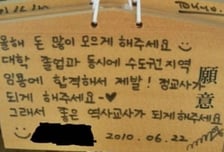 올해 돈 많이 모으게 해주세요
대학 졸업과 동시에 수도권 지역
임용에 합격해서 제발! 정교사가
되게 해주세요-♥
그래서 좋은 역사교사가 되게 해주세요
2010. 06. 22
願意